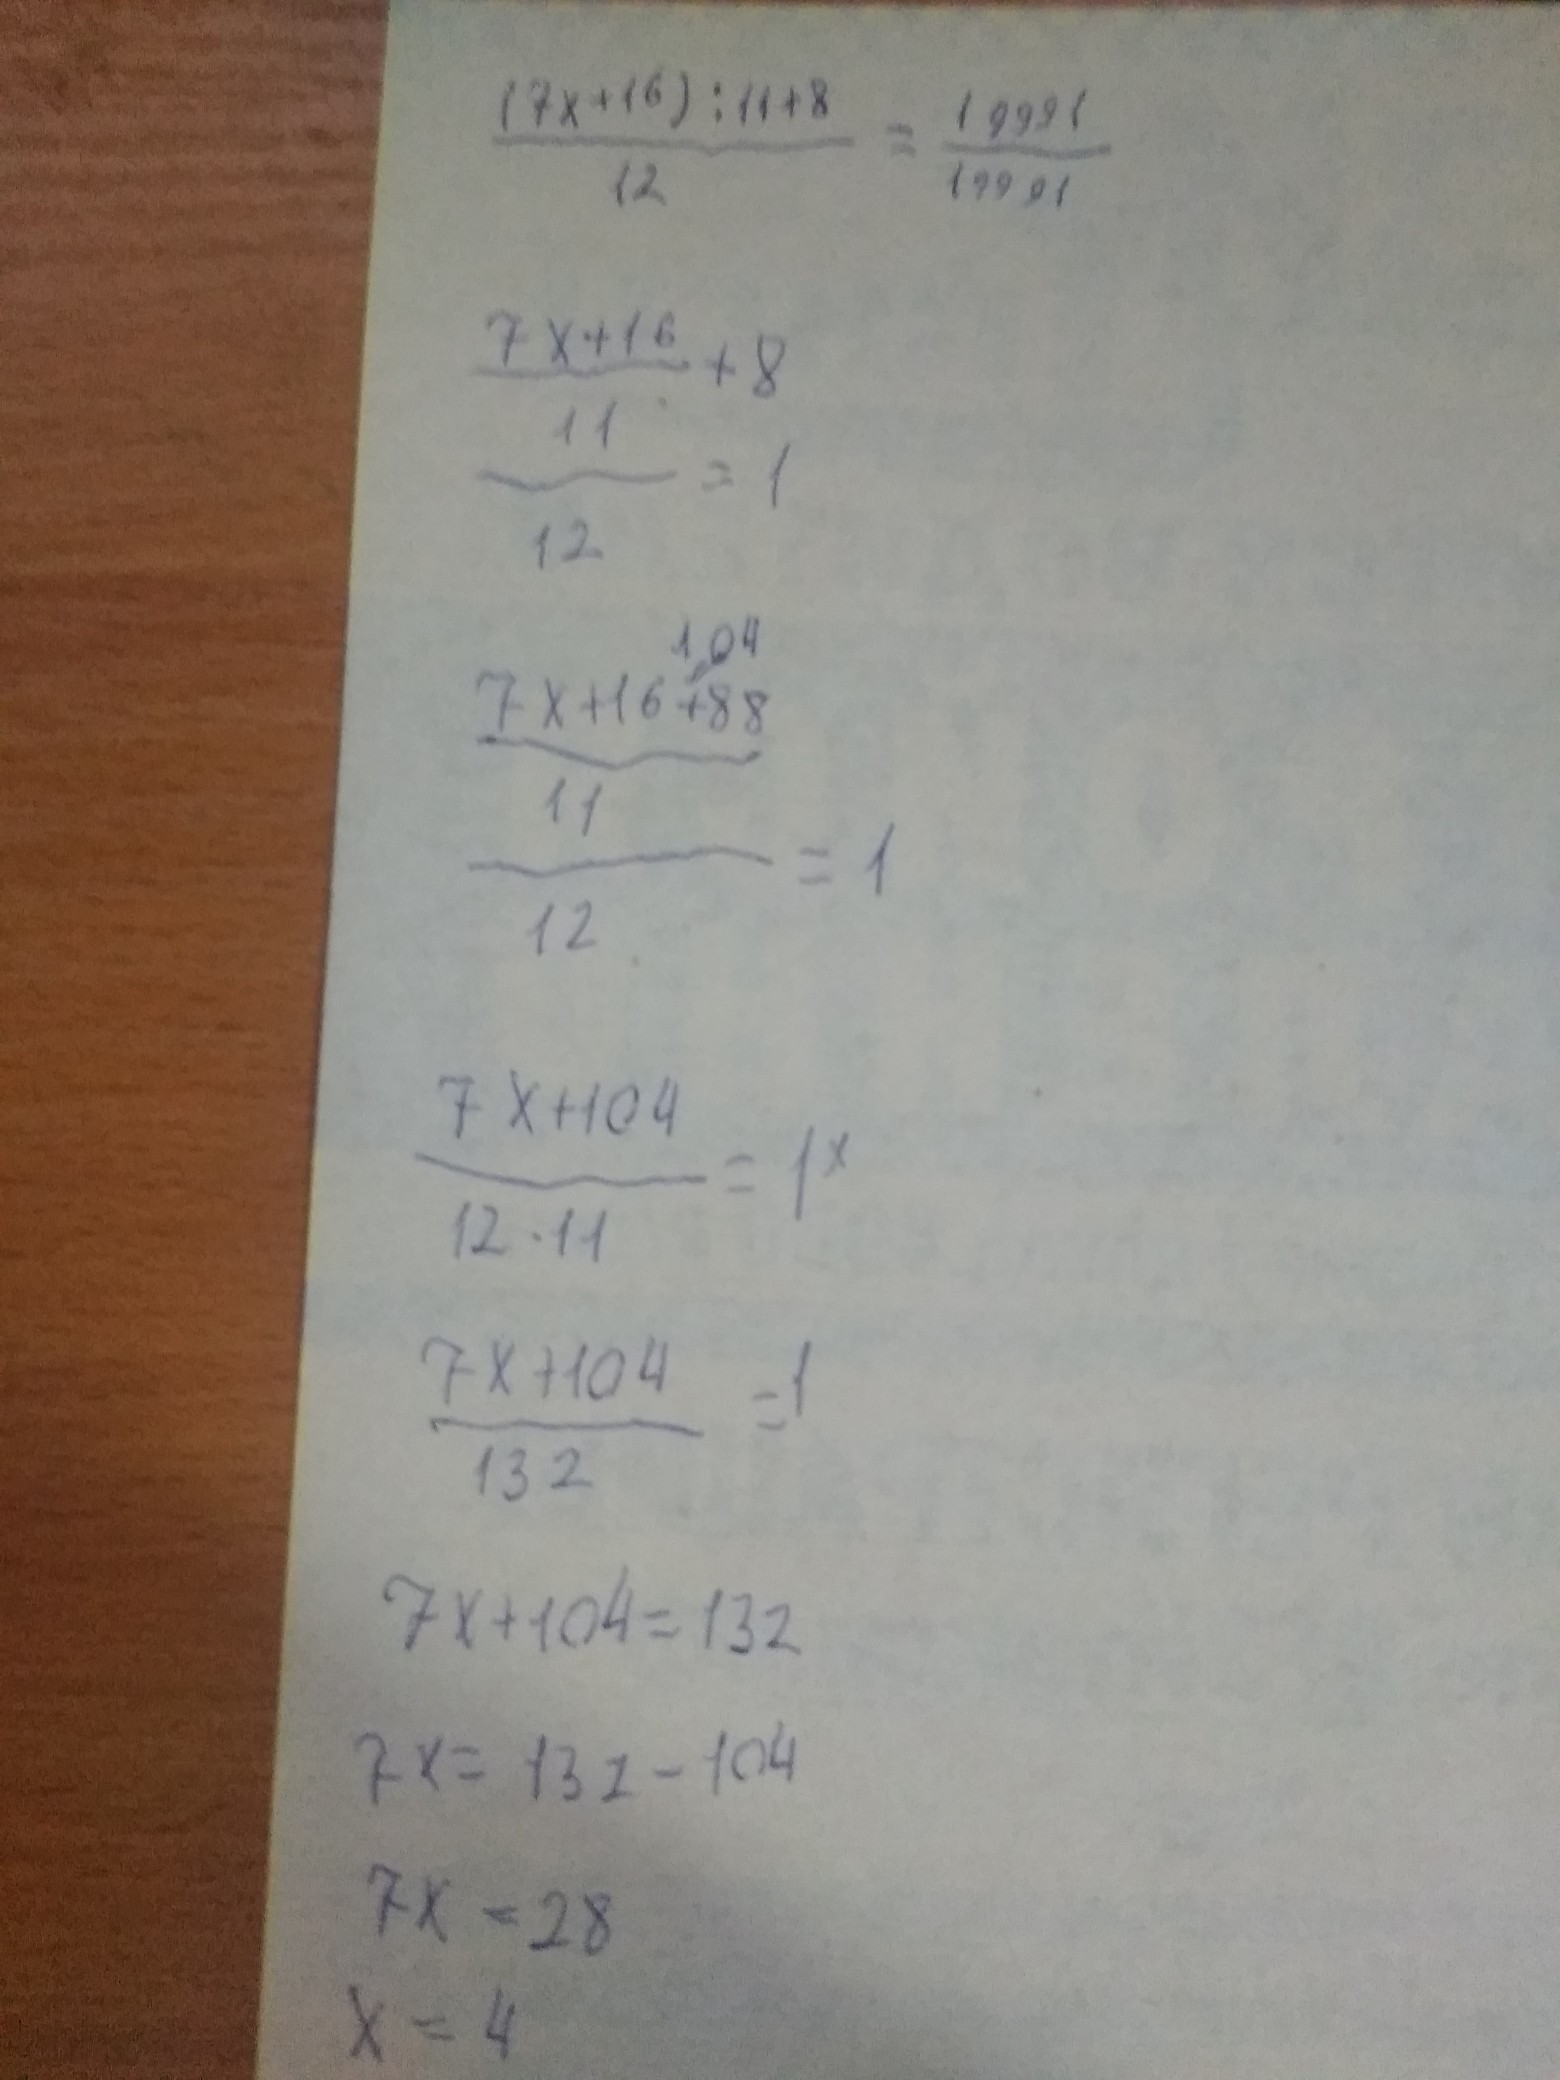 (7x+16):11+8 = 19991
12 19991
7x+16 +8
11
= 1
12
104
7x+16+88
11
= 1
12
7x+104
= 1 x
12·11
7x+104 = 1
132
7x+104=132
7x= 132-104
7x = 28
x = 4